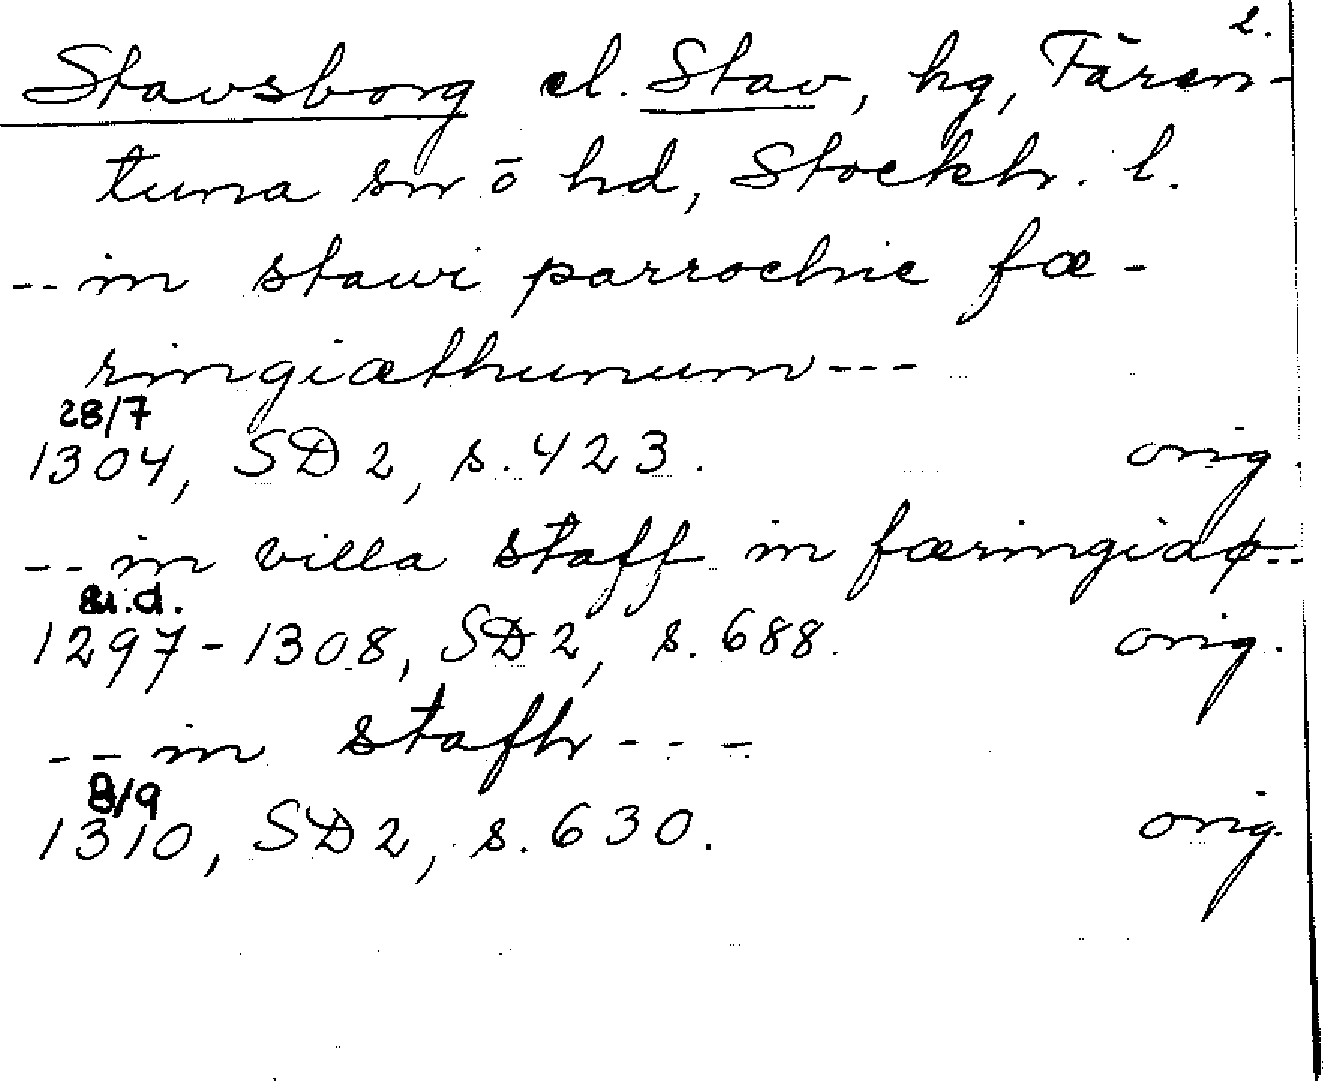 2.
Stavsborg el. Stav, hg, Fären-
tuna sn o hd, Stockh. l.
-- in stawi parrochie fæ-
ringiæthunum ---
28/7
1304, SD 2, s. 423. orig.
-- in villa staff in færingiaø--
u.d.
1297-1308, SD 2, s. 688. orig.
-- in stafh ---
8/9
1310, SD 2, s. 630. orig.